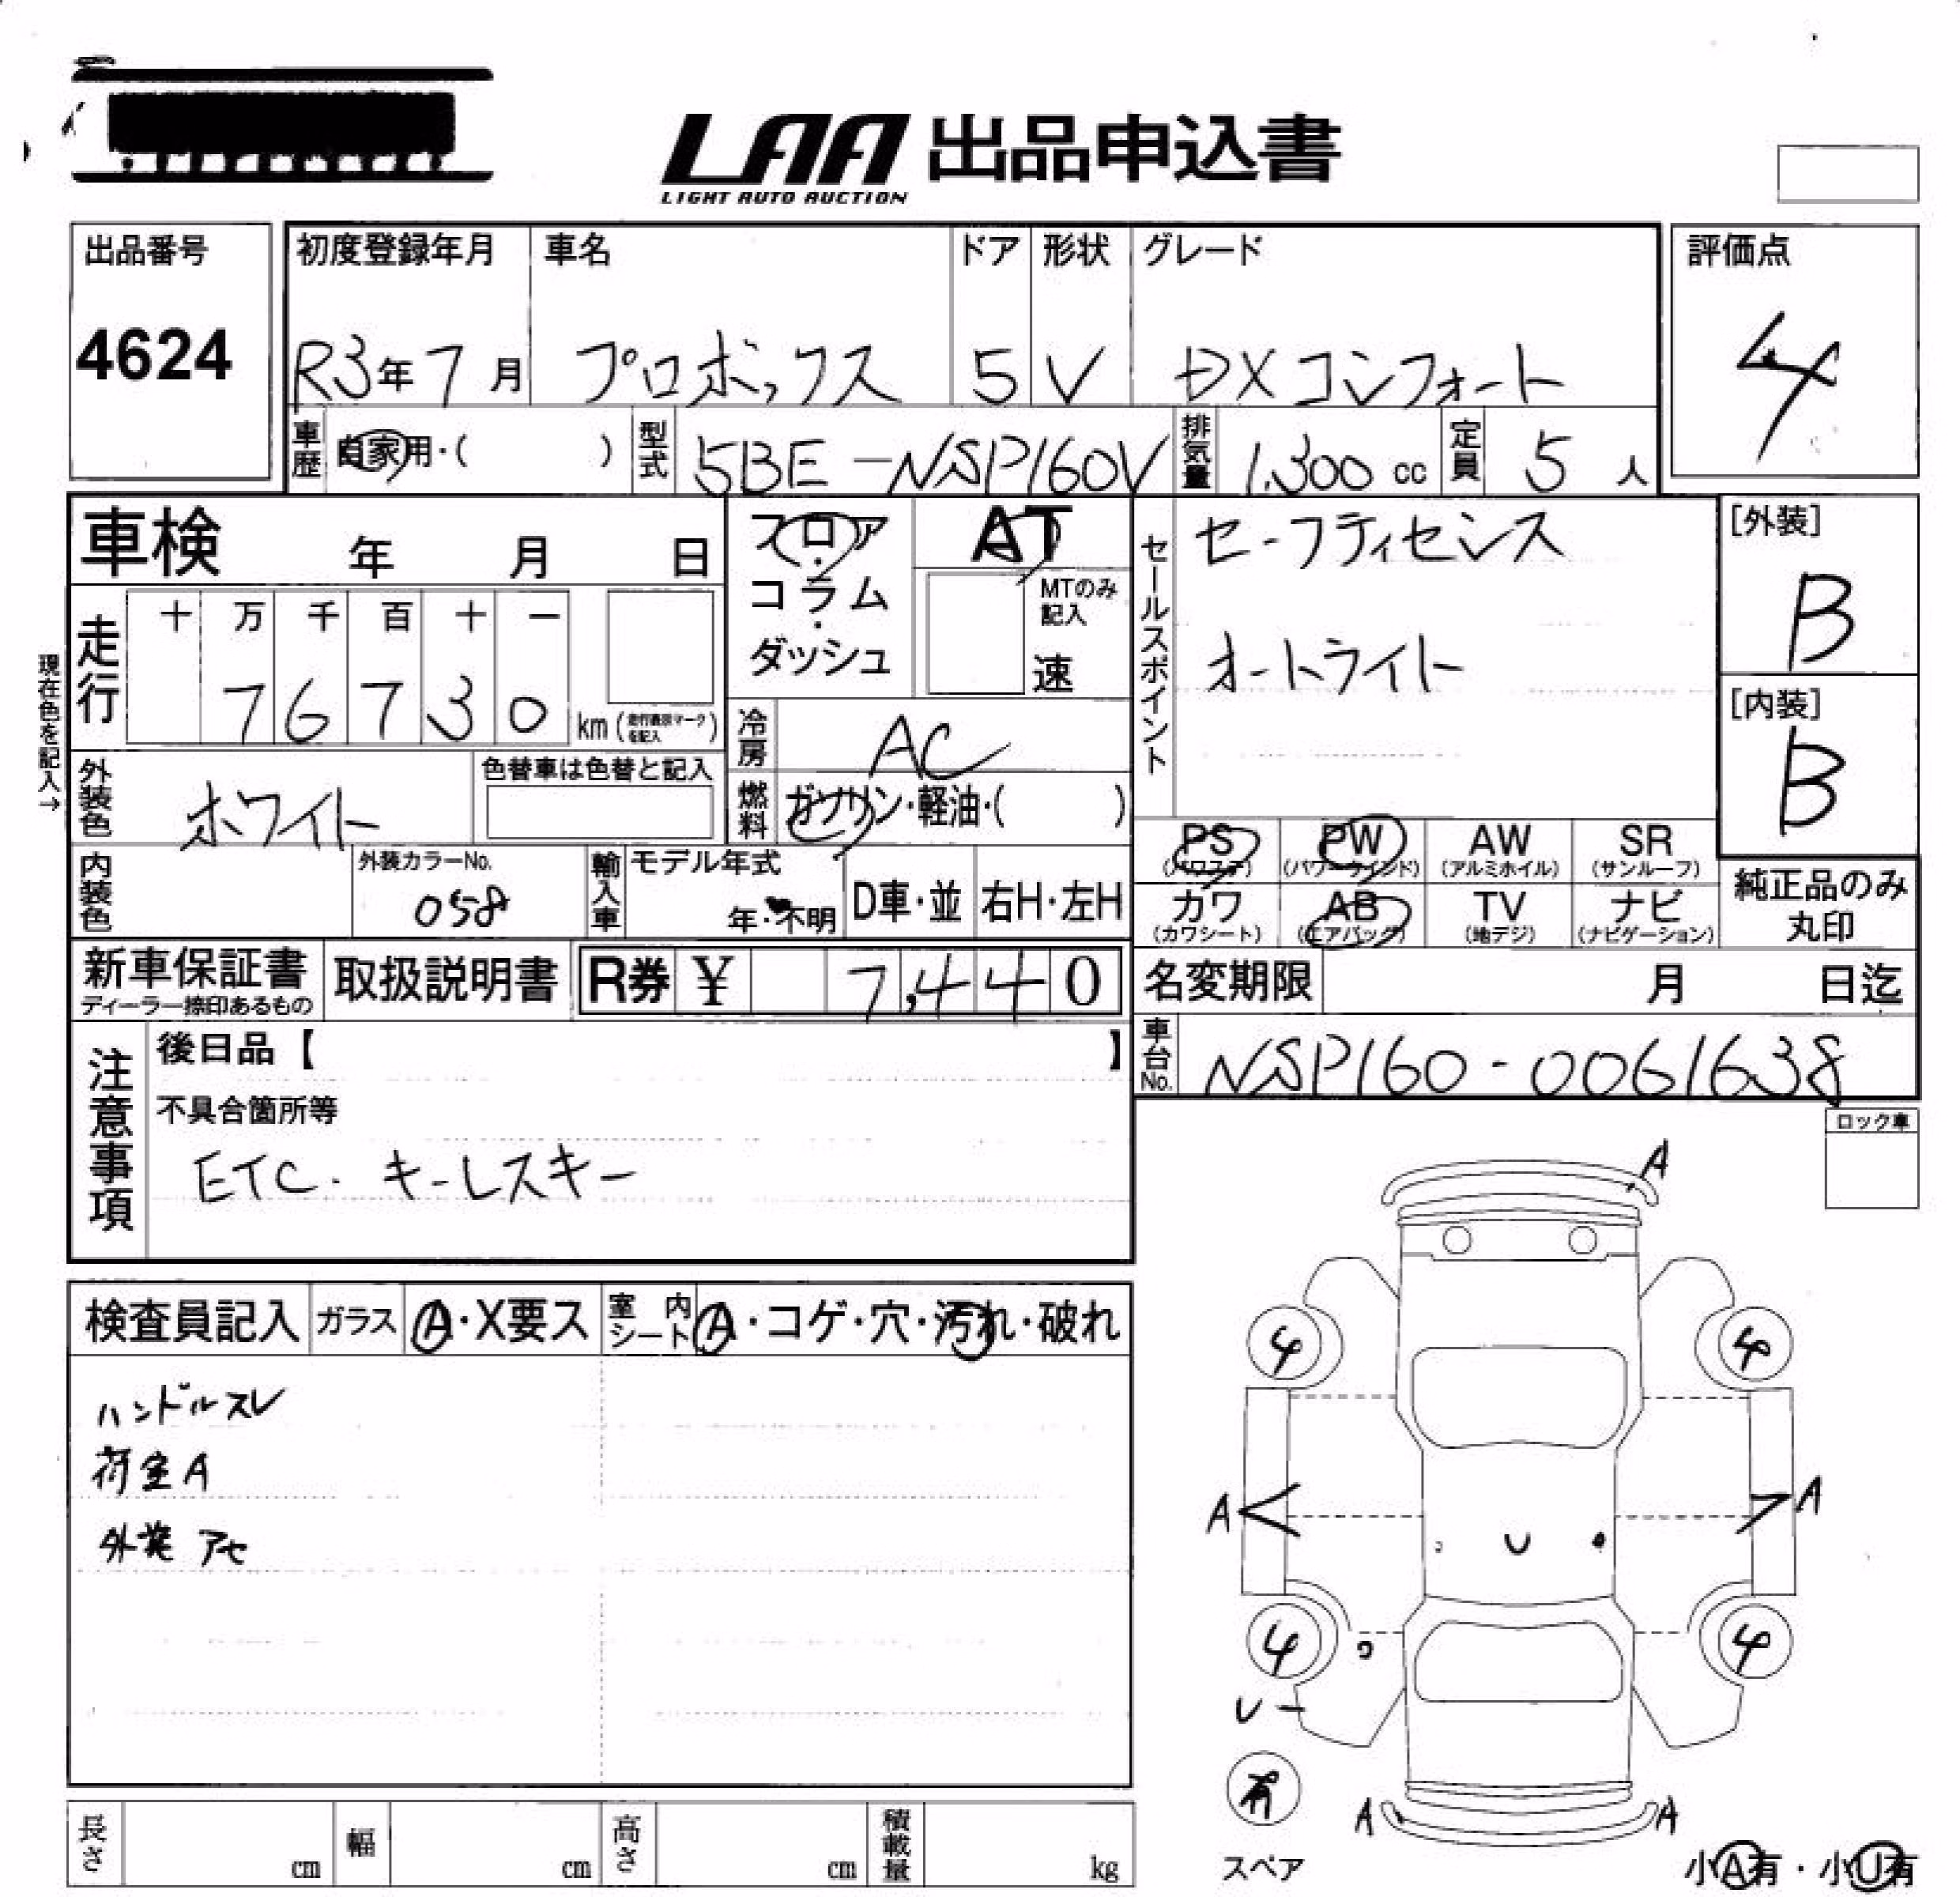 LAA 出品申込書
LIGHT AUTO AUCTION
出品番号
4624
初度登録年月 車名 ドア 形状 グレード
R3年7月 プロボックス 5 V DXコンフォート
評価点
4
車歴 自家用・( ) 型式 5BE-NSP160V 排気量 1,300cc 定員 5人
車検 年 月 日
フロア・コラム・ダッシュ
AT
MTのみ記入
速
現在色を記入→
走行 十 万 千 百 十 一
7 6 7 3 0 km (走行表示マークを記入)
冷房 AC
燃料 ガソリン・軽油・( )
外装色 ホワイト 色替車は色替と記入
内装色 外装カラーNo. 058
輸入車 モデル年式 年・不明 D車・並 右H・左H
セールスポイント
セーフティセンス
オートライト
[外装]
B
[内装]
B
PS (パワステ) PW (パワーウインド) AW (アルミホイル) SR (サンルーフ)
カワ (カワシート) AB (エアバッグ) TV (地デジ) ナビ (ナビゲーション)
純正品のみ
丸印
新車保証書
ディーラー捺印あるもの
取扱説明書 R券 ¥ 7,440
名変期限 月 日迄
車台No. NSP160-0061638
注意事項
後日品【 】
不具合箇所等
ETC. キーレスキー
ロック車
検査員記入 ガラス A・X要ス 室内シート A・コゲ・穴・汚れ・破れ
ハンドルスレ
荷室A
外装 アセ
A
4 4
A A
U
4 4
U
有
スペア
A A
小A有・小U有
長さ cm 幅 cm 高さ cm 積載量 kg